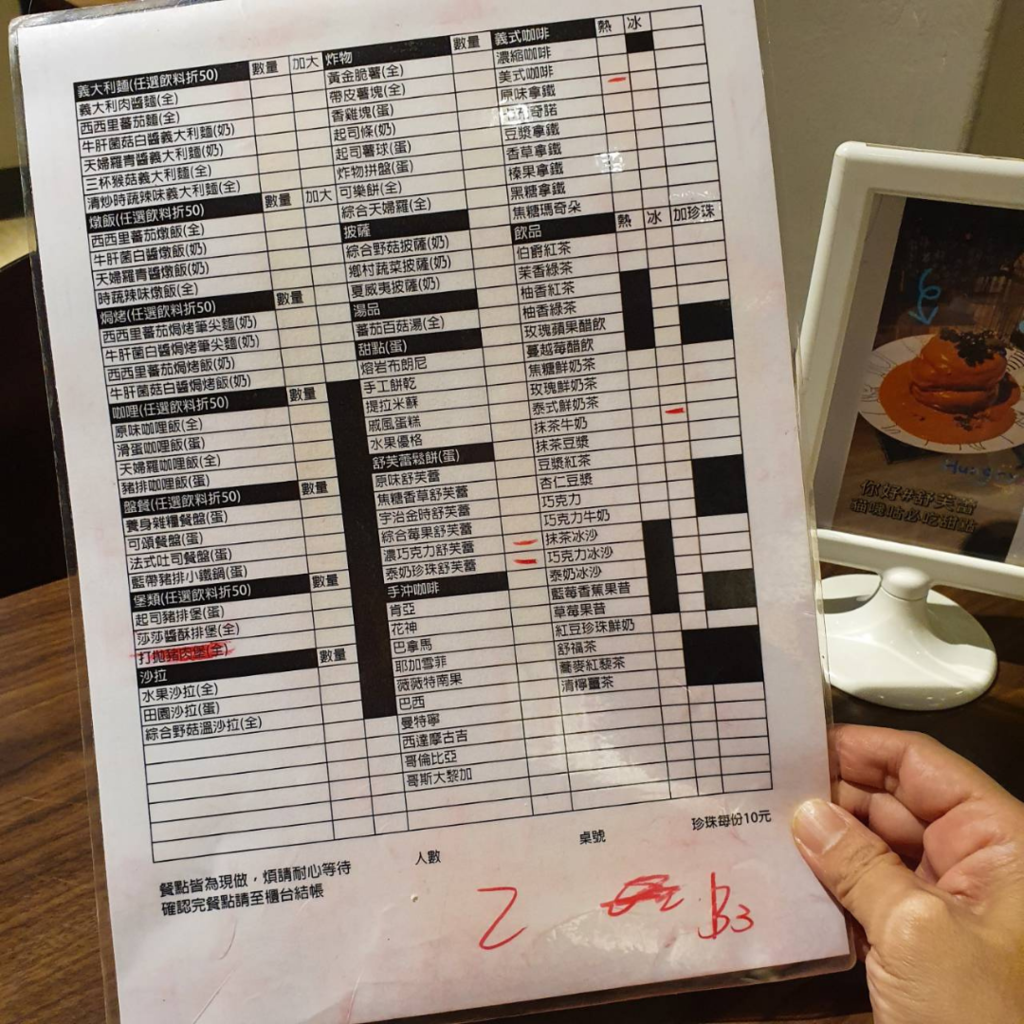 義大利麵(任選飲料折50) 數量 加大
義大利肉醬麵(全)
西西里蕃茄麵(全)
牛肝菌菇白醬義大利麵(奶)
天婦羅青醬義大利麵(奶)
三杯猴菇義大利麵(全)
清炒時蔬辣味義大利麵(全)
燉飯(任選飲料折50) 數量 加大
西西里蕃茄燉飯(全)
牛肝菌白醬燉飯(奶)
天婦羅青醬燉飯(奶)
時蔬辣味燉飯(全)
焗烤(任選飲料折50) 數量
西西里蕃茄焗烤筆尖麵(奶)
牛肝菌白醬焗烤筆尖麵(奶)
西西里蕃茄焗烤飯(奶)
牛肝菌菇白醬焗烤飯(奶)
咖哩(任選飲料折50) 數量
原味咖哩飯(全)
滑蛋咖哩飯(蛋)
天婦羅咖哩飯(全)
豬排咖哩飯(蛋)
盤餐(任選飲料折50) 數量
養身雜糧餐盤(蛋)
可頌餐盤(蛋)
法式吐司餐盤(蛋)
藍帶豬排小鐵鍋(蛋)
堡類(任選飲料折50) 數量
起司豬排堡(蛋)
莎莎醬酥排堡(全)
打拋豬肉堡(全)
沙拉 數量
水果沙拉(全)
田園沙拉(蛋)
綜合野菇溫沙拉(全)
炸物 數量
黃金脆薯(全)
帶皮薯塊(全)
香雞塊(蛋)
起司條(奶)
起司薯球(蛋)
炸物拼盤(蛋)
可樂餅(全)
綜合天婦羅(全)
披薩
綜合野菇披薩(奶)
鄉村蔬菜披薩(奶)
夏威夷披薩(奶)
湯品
蕃茄百菇湯(全)
甜點(蛋)
熔岩布朗尼
手工餅乾
提拉米蘇
戚風蛋糕
水果優格
舒芙蕾鬆餅(蛋)
原味舒芙蕾
焦糖香草舒芙蕾
宇治金時舒芙蕾
綜合莓果舒芙蕾
濃巧克力舒芙蕾
泰奶珍珠舒芙蕾
手沖咖啡
肯亞
花神
巴拿馬
耶加雪菲
薇薇特南果
巴西
曼特寧
西達摩古吉
哥倫比亞
哥斯大黎加
義式咖啡 熱 冰
濃縮咖啡
美式咖啡
原味拿鐵
奇諾
豆漿拿鐵
香草拿鐵
榛果拿鐵
黑糖拿鐵
焦糖瑪奇朵
飲品 熱 冰 加珍珠
伯爵紅茶
茉香綠茶
柚香紅茶
柚香綠茶
玫瑰蘋果醋飲
蔓越莓醋飲
焦糖鮮奶茶
玫瑰鮮奶茶
泰式鮮奶茶
抹茶牛奶
抹茶豆漿
豆漿紅茶
杏仁豆漿
巧克力
巧克力牛奶
抹茶冰沙
巧克力冰沙
泰奶冰沙
藍莓香蕉果昔
草莓果昔
紅豆珍珠鮮奶
舒福茶
蕎麥紅藜茶
清檸薑茶
餐點皆為現做，煩請耐心等待
確認完餐點請至櫃台結帳
人數
桌號
珍珠每份10元
2
B3
你好#舒芙蕾
貓嘰咕必吃甜點